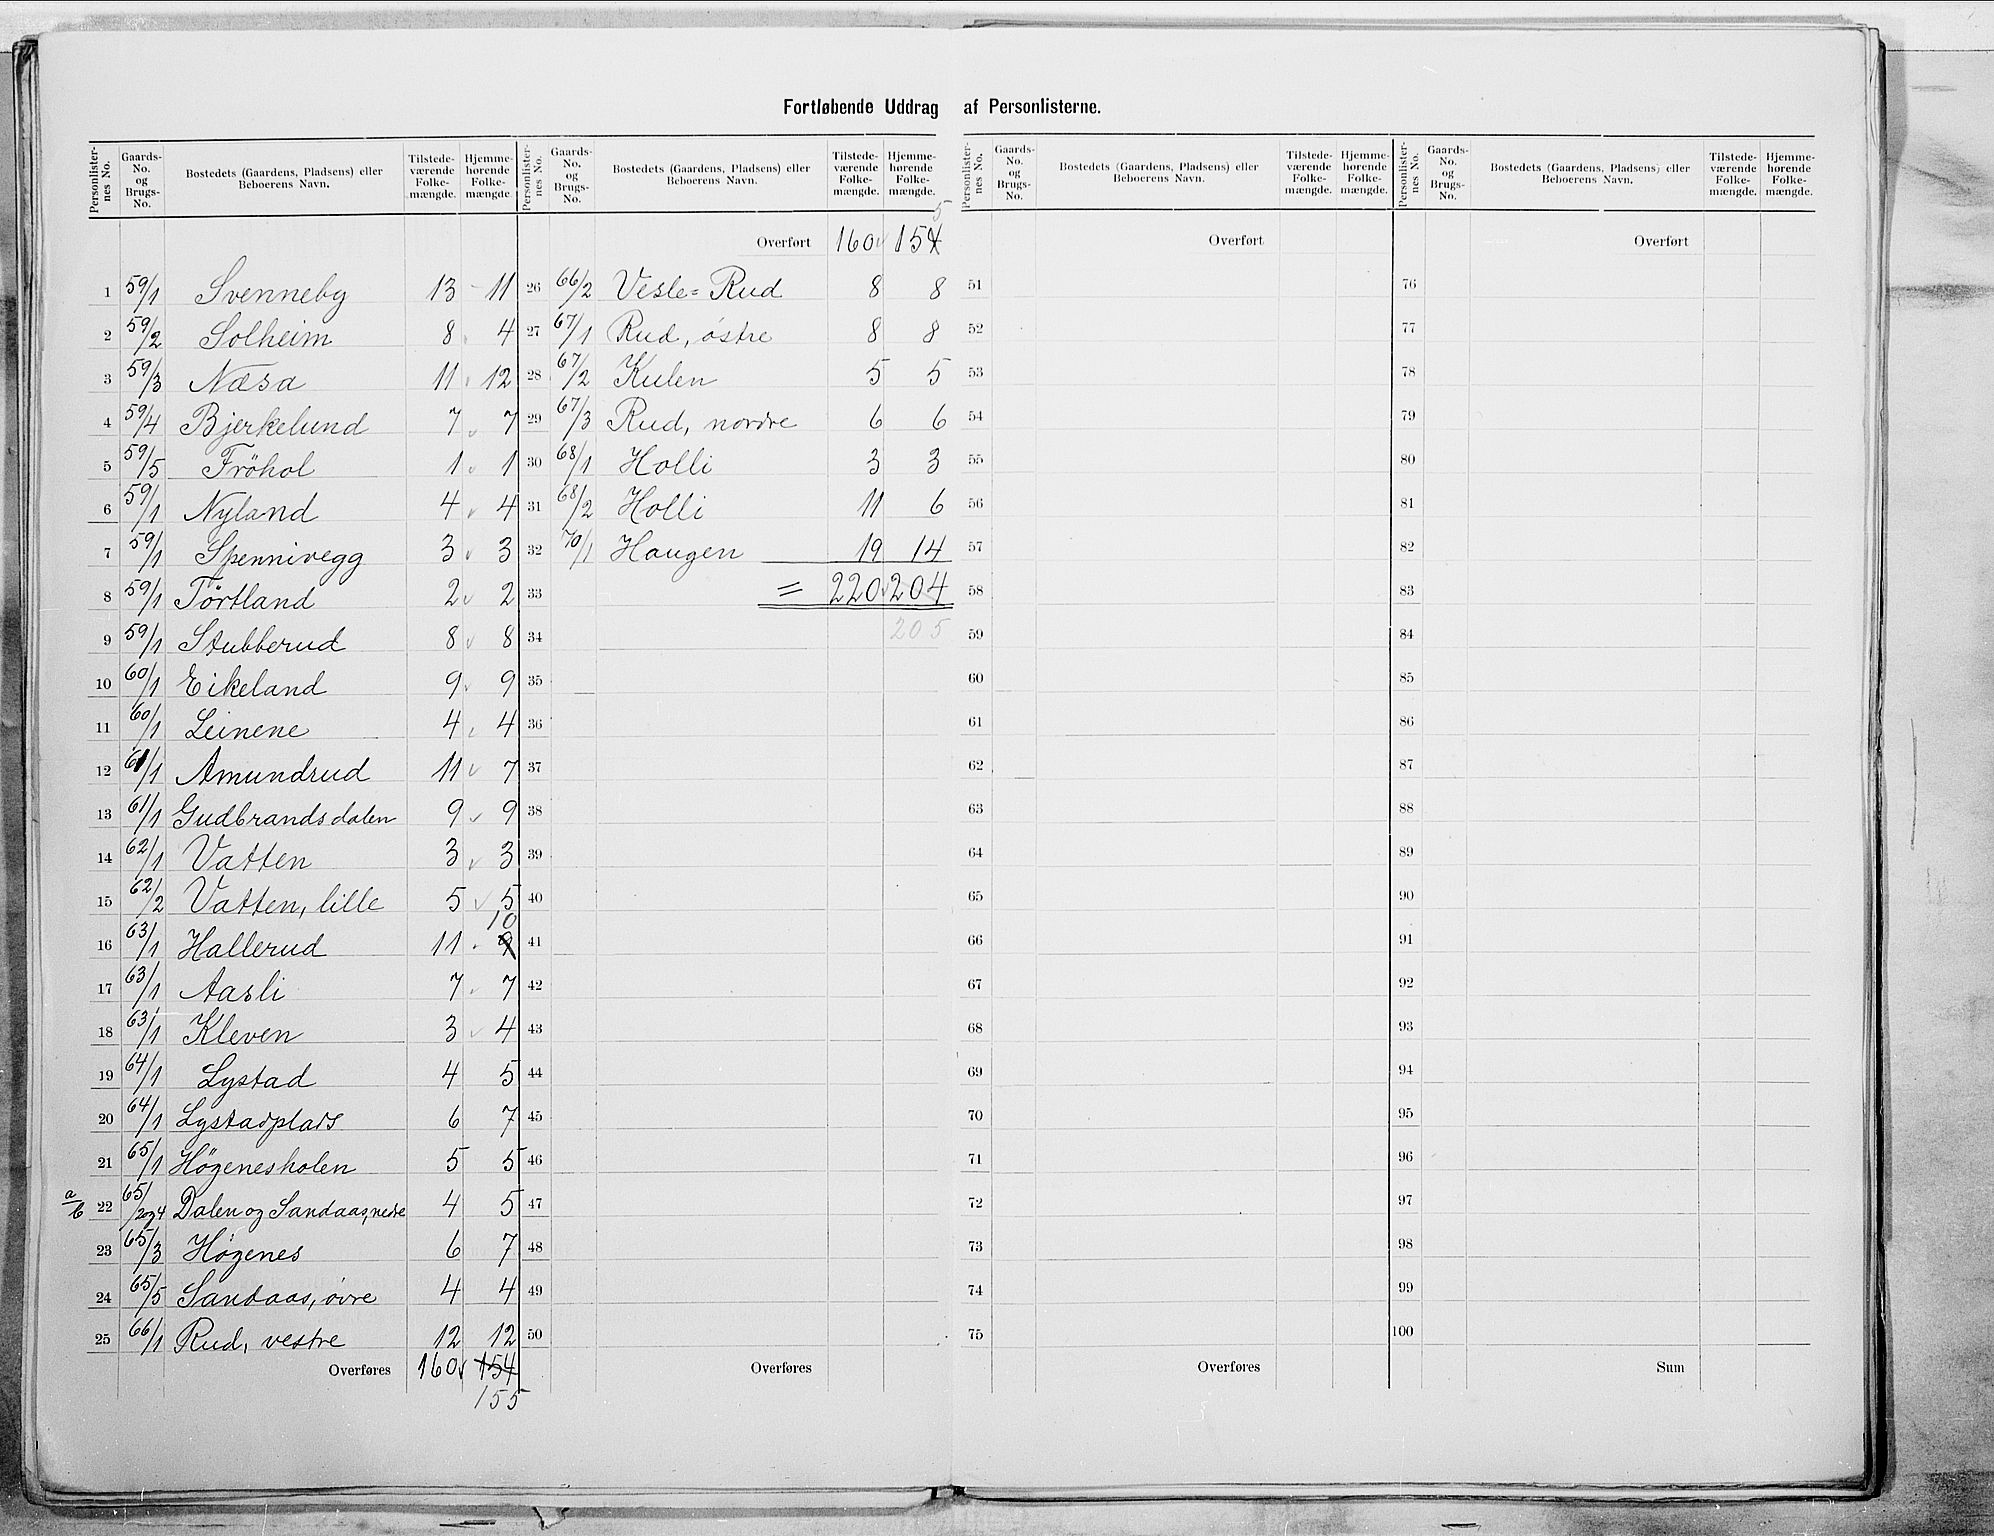 Fortløbende Uddrag af Personlisterne.
Personlister-nes No. | Gaards-No. og Brugs-No. | Bostedets (Gaardens, Pladsens) eller Beboerens Navn. | Tilstede-værende Folke-mængde. | Hjemme-hørende Folke-mængde
1 59/1 Svenneby 13 - 11
2 59/2 Solheim 8 4
3 59/3 Næsa 11 12
4 59/4 Bjerkelund 7 7
5 59/5 Fröhol 1 1
6 59/1 Nyland 4 4
7 59/1 Spennivegg 3 3
8 59/1 Törtland 2 2
9 59/1 Stubberud 8 8
10 60/1 Eikeland 9 9
11 60/1 Leinene 4 4
12 61/1 Amundrud 11 7
13 61/1 Gudbrandsdalen 9 9
14 62/1 Vatten 3 3
15 62/2 Vatten, lille 5 5
16 63/1 Hallerud 11 9 10
17 63/1 Aasli 7 7
18 63/1 Kleven 3 4
19 64/1 Lystad 4 5
20 64/1 Lystadplads 6 7
21 65/1 Høgenesholen 5 5
a/b 22 65/2og4 Dalen og Sandaas, nedre 4 5
23 65/3 Høgenes 6 7
24 65/5 Sandaas, øvre 4 4
25 66/1 Rud, vestre 12 12
Overføres 160 154
155
Personlister-nes No. | Gaards-No. og Brugs-No. | Bostedets (Gaardens, Pladsens) eller Beboerens Navn. | Tilstede-værende Folke-mængde. | Hjemme-hørende Folke-mængde.
5
Overført 160 154
26 66/2 Vesle=Rud 8 8
27 67/1 Rud, østre 8 8
28 67/2 Kulen 5 5
29 67/3 Rud, nordre 6 6
30 68/1 Holli 3 3
31 68/2 Holli 11 6
32 70/1 Haugen 19 14
33 = 220 204
34 205
35
36
37
38
39
40
41
42
43
44
45
46
47
48
49
50
Overføres
Personlister-nes No. | Gaards-No. og Brugs-No. | Bostedets (Gaardens, Pladsens) eller Beboerens Navn. | Tilstede-værende Folke-mængde. | Hjemme-hørende Folke-mængde.
Overført
51
52
53
54
55
56
57
58
59
60
61
62
63
64
65
66
67
68
69
70
71
72
73
74
75
Overføres
Personlister-nes No. | Gaards-No. og Brugs-No. | Bostedets (Gaardens, Pladsens) eller Beboerens Navn. | Tilstede-værende Folke-mængde. | Hjemme-hørende Folke-mængde.
Overført
76
77
78
79
80
81
82
83
84
85
86
87
88
89
90
91
92
93
94
95
96
97
98
99
100
Sum